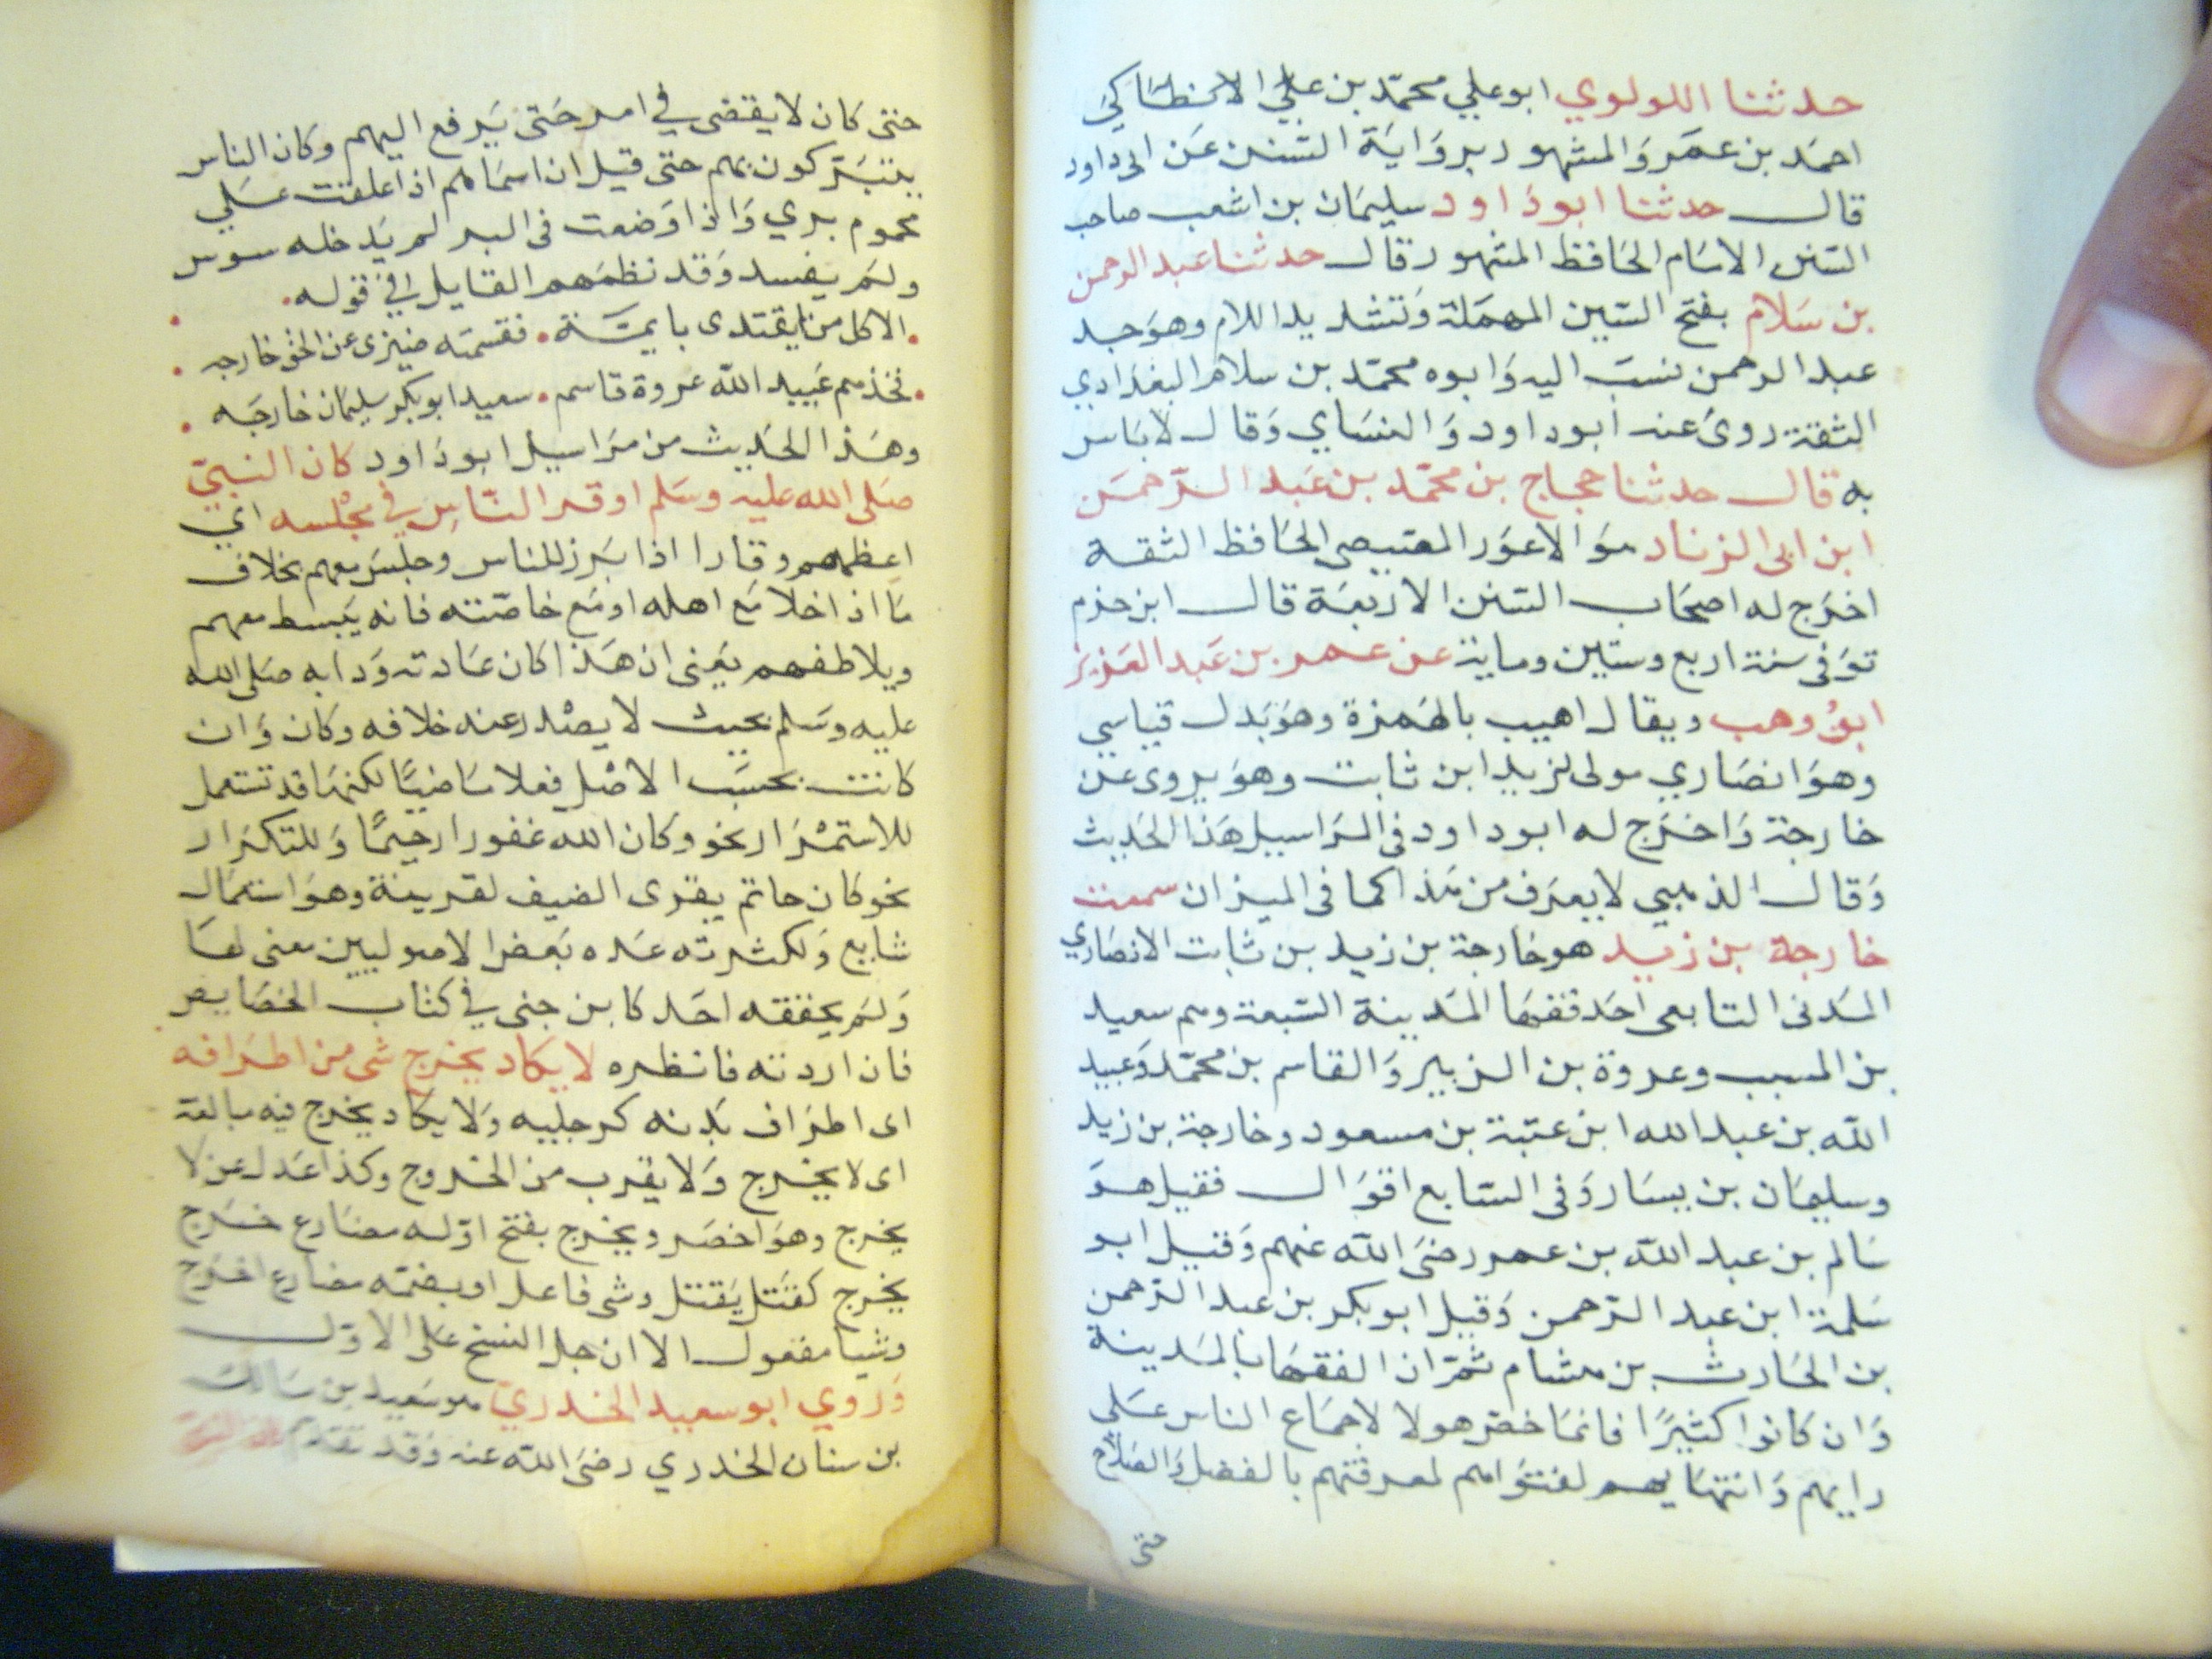 حدثنا اللولوي ابو علي محمّد بن علي الانطاكي
احمد بن عمرو المشهور برواية السنن عن ابي داود
قال حدثنا ابو داود سليمان بن اشعب صاحب
السنن الامام الحافظ المشهور قال حدثنا عبد الرحمن
بن سلام بفتح السين المهملة وتشديد اللام وهو جد
عبد الرحمن نسب اليه وابوه محمد بن سلام البغدادي
الثقة روى عنه ابو داود والنساي وقال لا باس
به قال حدثنا حجاج بن محمد بن عبد الرحمن
ابن ابي الزناد هو الاعور الحافظ الثقة
اخرج له اصحاب السنن الاربعة قال ابن حزم
توفى سنة اربع وستين وماية عن عمر بن عبد العزيز
ابو وهب ويقال اهيب بالهمزة وهو بدل قياسي
وهو انصاري مولى لزيد ابن ثابت وهو يروى عن
خارجة واخرج له ابو داود في المراسيل هذا الحديث
وقال الذهبي لا يعرف من هذا كما في الميزان سمعت
خارجة بن زيد هو خارجة بن زيد بن ثابت الانصاري
المدنى التابعى احد فقها المدينة السبعة وهم سعيد
بن المسيب وعروة بن الزبير والقاسم بن محمد وعبيد
الله بن عبد الله ابن عتبة بن مسعود وخارجة بن زيد
وسليمان بن يسار وفى السابع اقوال فقيل هو
سالم بن عبد الله بن عمر رضي الله عنهم وقيل ابو
سلمة ابن عبد الرحمن وقيل ابو بكر بن عبد الرحمن
بن الحارث بن هشام ثم ان الفقها بالمدينة
وان كانوا كثيرًا فانما خص هولا لاجماع الناس على
رايهم وانتهايهم لفتواهم لمعرفتهم بالفضل والصلاح
حتى
حتى كان لا يقضى في امر حتى يرفع اليهم وكان الناس
يتبركون بهم حتى قيل ان اسماهم اذا علقت على
محموم بري واذا وضعت فى البر لم يدخله سوس
ولم يفسد وقد نظمهم القايل في قوله
الا كل من لا يقتدى بايمة فقسمته ضيزى عن الحق خارجه
فخذهم عبيد الله عروة قاسم سعيد ابو بكر سليمان خارجه
وهذا الحديث من مراسيل ابو داود كان النبيّ
صلى الله عليه وسلم اوقر الناس في مجلسه اي
اعظمهم وقارا اذا برز للناس وجلس معهم بخلاف
ما اذا خلا مع اهله او مع خاصته فانه يبسط معهم
ويلاطفهم يعنى ان هذا كان عادته ودابه صلى الله
عليه وسلم بحيث لا يصدر عنه خلافه وكان وان
كانت بحسب الاصل فعلا ماضيًا لكنها قد تستعمل
للاستمرار نحو وكان الله غفورا رحيمًا وللتكرار
نحو كان حاتم يقرى الضيف لقرينة وهو استعمال
شايع ولكثرته عده بعض الاصوليين معنى لها
ولم يحققه احد كابن جنى في كتاب الخصايص
فان اردته فانظره لا يكاد يخرج شى من اطرافه
اى اطراف بدنه كرجليه ولا يكاد يخرج فيه مبالغة
اى لا يخرج ولا يقرب من الخروج وكذا عدل عن لا
يخرج وهو اخصر ويخرج بفتح اوله مضارع خرج
يخرج كقتل يقتل وشى فاعل او بضمه مضارع اخرج
وشيا مفعول الا ان جل النسخ على الاول
وروي ابو سعيد الخدري هو سعيد بن مالك
بن سنان الخدري رضي الله عنه وقد تقدم